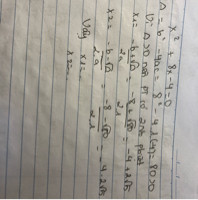 x² + 8x - 4 = 0
Δ = b² - 4ac = 8² - 4.1.(-4) = 80 > 0
Vì Δ > 0 nên PT có 2 n₀ phân biệt
x₁ = -b+√Δ / 2a = -8+√80 / 2.1 = -4+2√5
x₂ = -b-√Δ / 2a = -8-√80 / 2.1 = -4-2√5
Vậy x₁ =
x₂ =